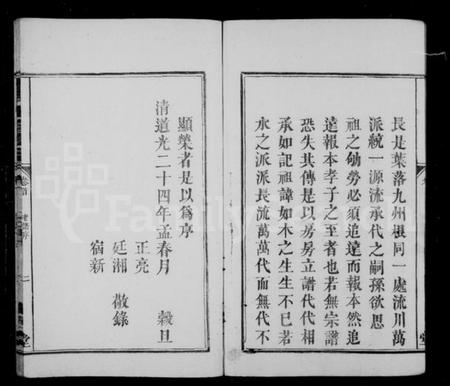 長是葉落九州根同一處流川萬
派統一源流承代之嗣孫欲思
祖之劬勞必須追遠而報本然追
遠報本孝子之至者也若無宗譜
恐失其傳是以房房立譜代代相
承如記祖諱如木之生生不已若
水之派派長流萬萬代而無代不
顯榮者是以為序
清道光二十四年孟春月 穀旦
正亮
廷湘 敬錄
宿新
FamilySearch